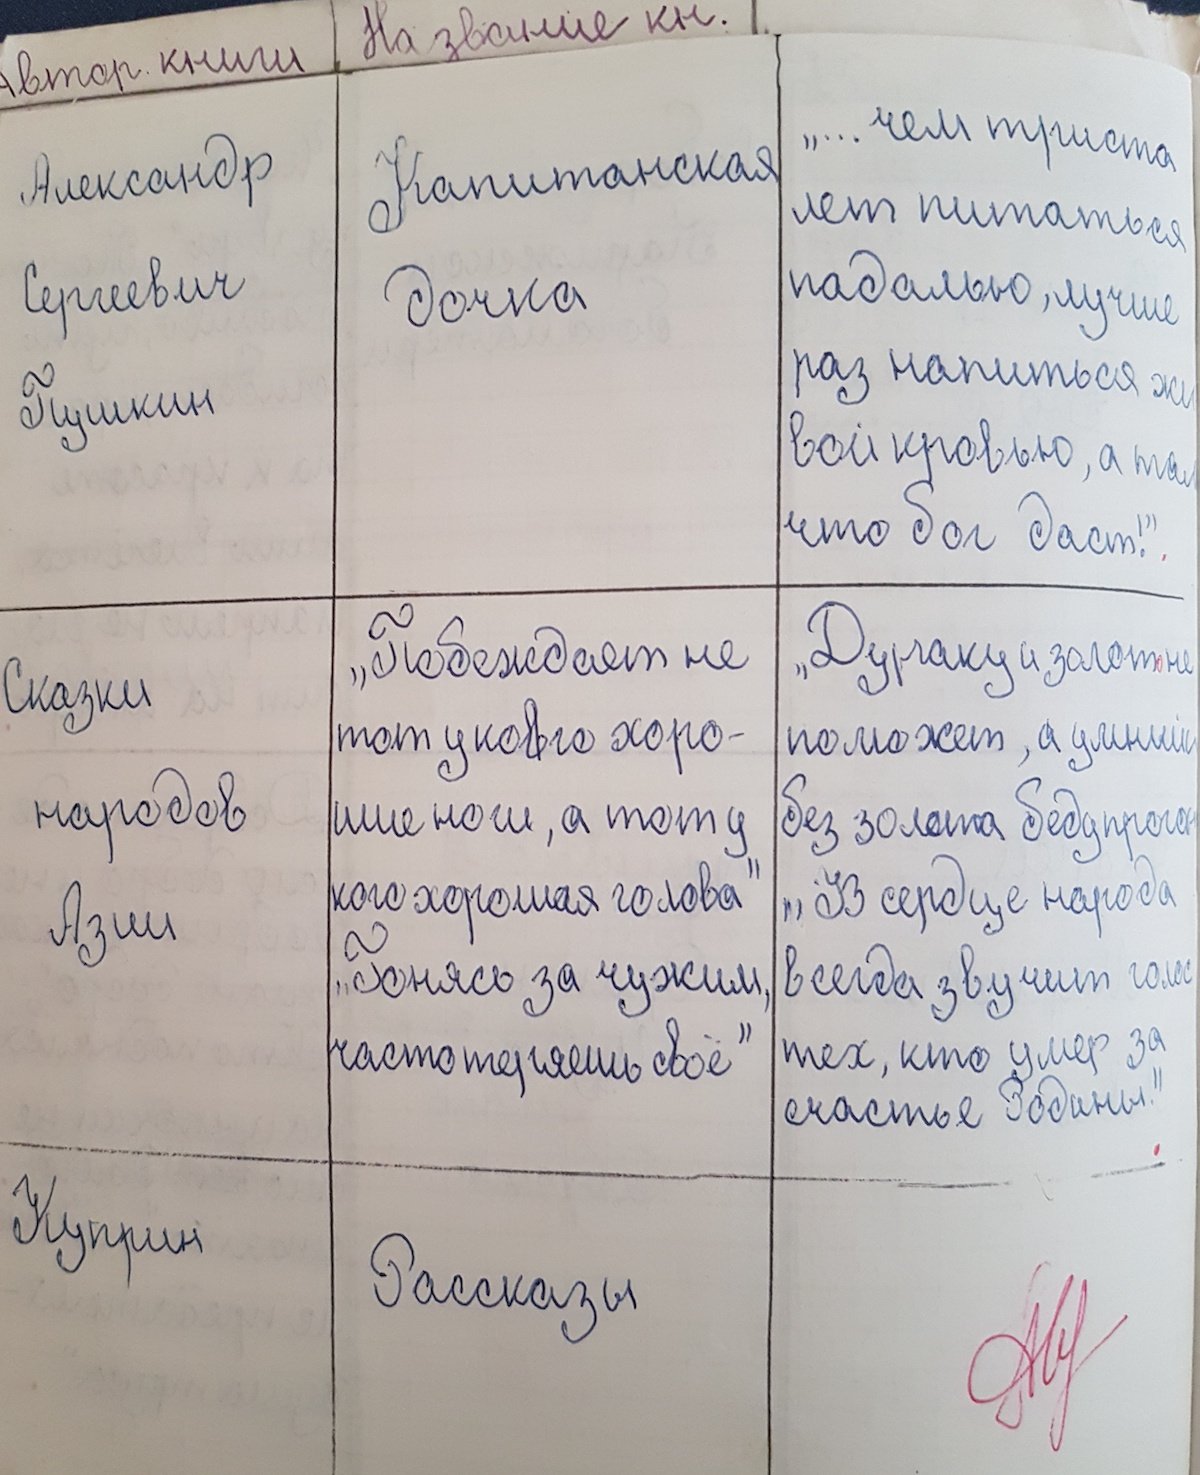 Автор. книги
Название кн.
Александр
Сергеевич
Пушкин
Капитанская
дочка
„... чем триста
лет питаться
падалью, лучше
раз напиться жи
вой кровью, а там
что бог даст!".
Сказки
народов
Азии
„Побеждает не
тот у кового хоро-
шие ноги, а тот у
кого хорошая голова"
„Гонясь за чужим,
часто теряешь своё"
„Дураку и золото не
поможет, а умный
без золота беду прогон
„В сердце народа
всегда звучит голос
тех, кто умер за
счастье Родины!"
Куприн
Рассказы